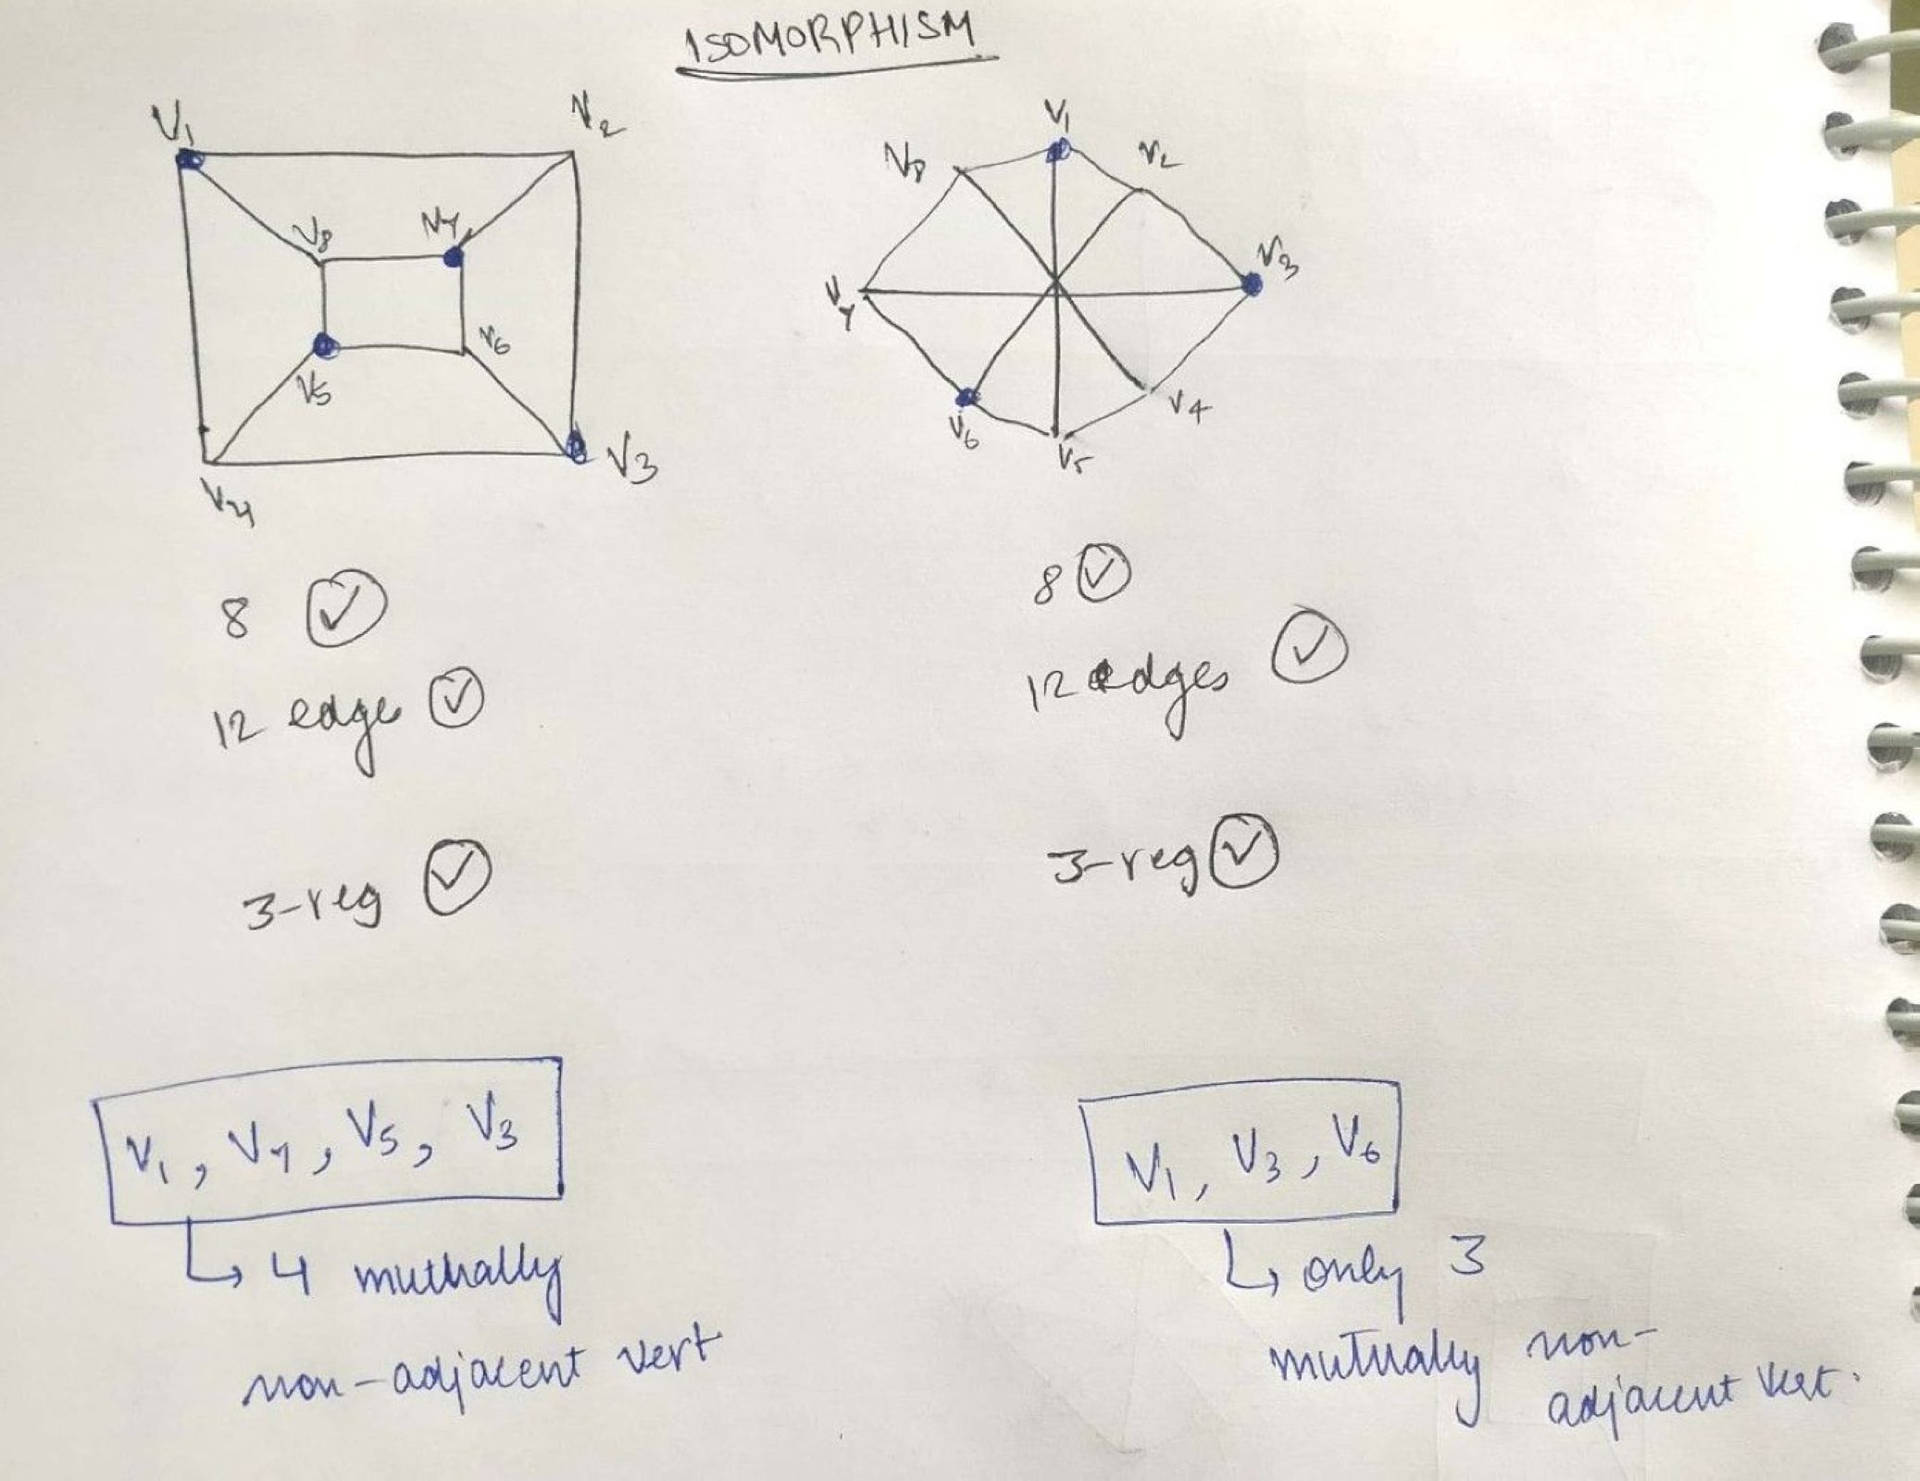 ISOMORPHISM
V1
V2
V8
V7
V5
V6
V4
V3
V1
V8
V2
V3
V7
V4
V6
V5
8
12 edge
3-reg
8
12 edges
3-reg
V1, V7, V5, V3
↳ 4 muthally
non-adjacent vert
V1, V3, V6
↳ only 3
mutually non-
adjacent vert.